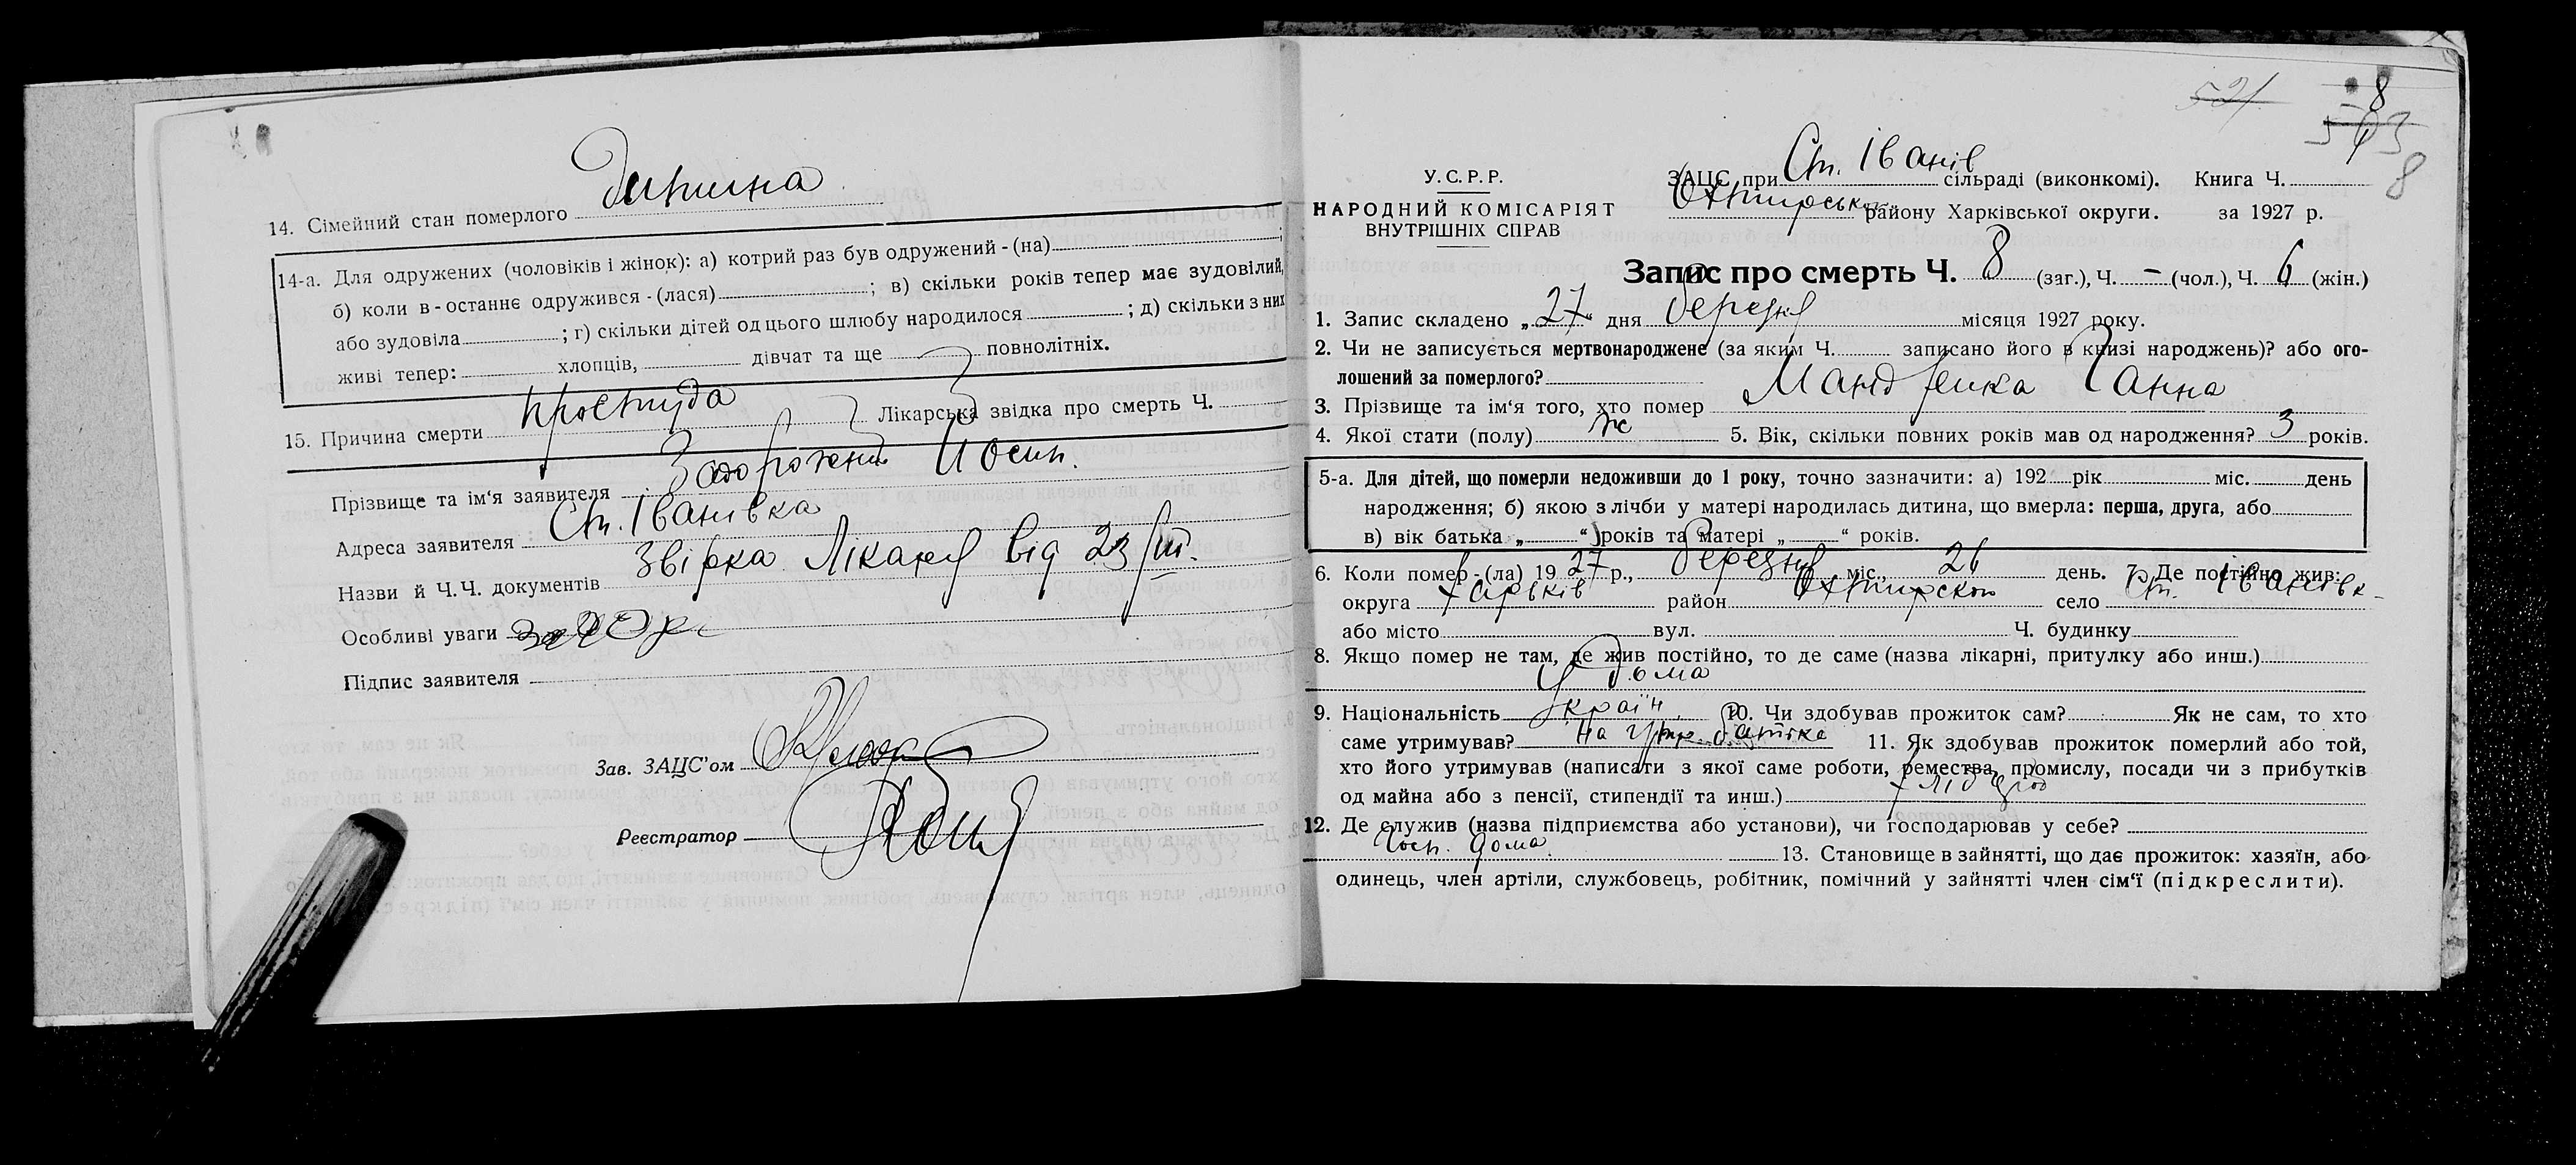 14. Сімейний стан померлого Дитина
14-а. Для одружених (чоловіків і жінок): а) котрий раз був одружений - (на) ;
б) коли в-останнє одружився - (лася) ; в) скільки років тепер має зудовілий,
або зудовіла ; г) скільки дітей од цього шлюбу народилося ; д) скільки з них
живі тепер: хлопців, дівчат та ще повнолітніх.
15. Причина смерти простуда Лікарська звідка про смерть Ч.
Прізвище та ім'я заявителя Задорожний Иосип.
Адреса заявителя Ст. Іванівка
Назви й Ч.Ч. документів Лікаря від 23/III.
Особливі уваги
Підпис заявителя
Зав. ЗАЦС'ом
Реєстратор
521
8
8
У.С.Р.Р.
НАРОДНИЙ КОМІСАРІЯТ
ВНУТРІШНІХ СПРАВ
ЗАЦС при Ст. Іванів сільраді (виконкомі). Книга Ч.
Охтирськ. району Харківської округи. за 1927 р.
Запис про смерть Ч. 8 (заг.), Ч. – (чол.), Ч. 6 (жін.)
1. Запис складено „27" дня березня місяця 1927 року.
2. Чи не записується мертвонароджене (за яким Ч. записано його в книзі народжень)? або ого-
лошений за померлого?
3. Прізвище та ім'я того, хто помер Ганна
4. Якої стати (полу) ж 5. Вік, скільки повних років мав од народження? 3 років.
5-а. Для дітей, що померли недоживши до 1 року, точно зазначити: а) 192 рік міс. день
народження; б) якою з лічби у матері народилась дитина, що вмерла: перша, друга, або
в) вік батька „ " років та матері „ " років.
6. Коли помер - (ла) 1927 р., березня міс. 21 день. 7. Де постійно жив:
округа Харьків район Охтирском село Ст. Іванівк
або місто вул. Ч. будинку
8. Якщо помер не там, де жив постійно, то де саме (назва лікарні, притулку або инш.)
У дома
9. Національність Україн 10. Чи здобував прожиток сам? Як не сам, то хто
саме утримував? На утр. батька 11. Як здобував прожиток померлий або той,
хто його утримував (написати з якої саме роботи, ремества, промислу, посади чи з прибутків
од майна або з пенсії, стипендії та инш.) хлібороб
12. Де служив (назва підприємства або установи), чи господарював у себе?
Госп. дома. 13. Становище в зайнятті, що дає прожиток: хазяїн, або
одинець, член артіли, службовець, робітник, помічний у зайнятті член сім'ї (підкреслити).